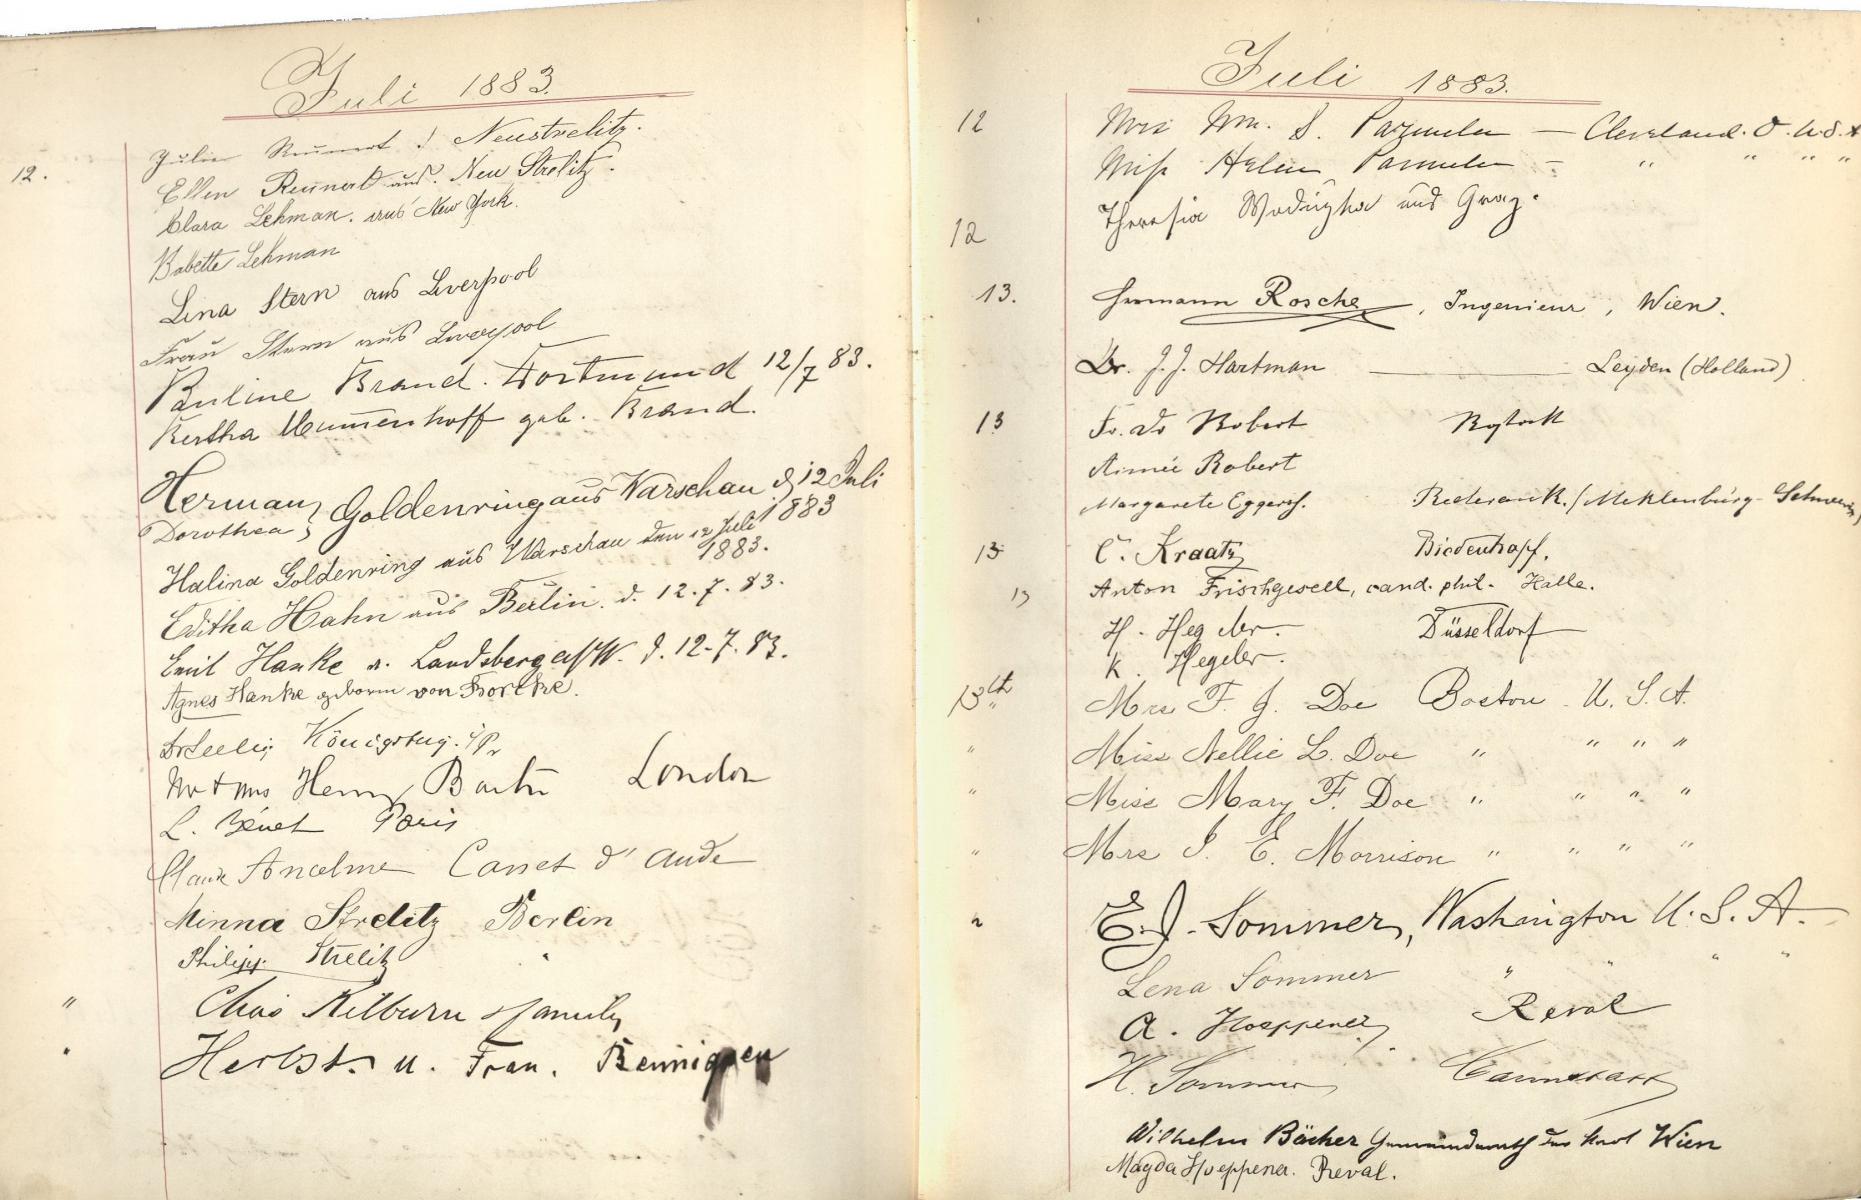 Juli 1883.
12. Julie Reinert Neustrelitz.
Ellen Reinert aus Neu Strelitz.
Clara Lehman. aus New York.
Babette Lehman
Lina Stern aus Liverpool
Frau Stern aus Liverpool
Pauline Brand. Dortmund 12/7 83.
Bertha Mummenhoff geb. Brand.
Herman Goldenring aus Warschau d 12 Juli
Dorothea 1883
Halina Goldenring aus Warschau den 12 Juli
1883.
Editha Hahn aus Berlin. d. 12.7.83.
Emil Hanke a. Landsberg a/W. d. 12.7.83.
Agnes Hanke geboren von
Dr Seelig Königsbug. i/Pr
Mr + Mrs Henry London
L. Bénet Paris
Ancelme Canet d'aude
Minna Strelitz Berlin
Philipp Strelitz "
" Chas Kilburn & family
" Herbst. u. Frau. Bennigsen
Juli 1883.
12 Mrs Wm. S. Parmelee — Cleveland. O. U.S.A
Miss Helen Parmelee — " " " "
12 Theresia aus Graz.
13. Hermann Rosche, Ingenieur, Wien.
Dr. J. J. Hartman — Leyden (Holland)
13 Fr. Dr Robert Rostock
Aimée Robert
Margarete Eggerss. / Mecklenburg-Schwerin
13 C. Kraatz Biedenkopf.
13 Anton Frischgesell, cand. phil. Halle.
H. Hegeler. Düsseldorf
K. Hegeler.
13th Mrs F. J. Doe Boston U. S. A.
" Miss Nellie L. Doe " " " "
" Miss Mary F. Doe " " " "
" Mrs I. E. Morrison " " " "
" E. J. Sommer, Washington U. S. A.
Lena Sommer " " " "
A. Hoeppener Reval
H. Sommer Cannstatt
Wilhelm Bächer Wien
Magda Hoeppener. Reval.